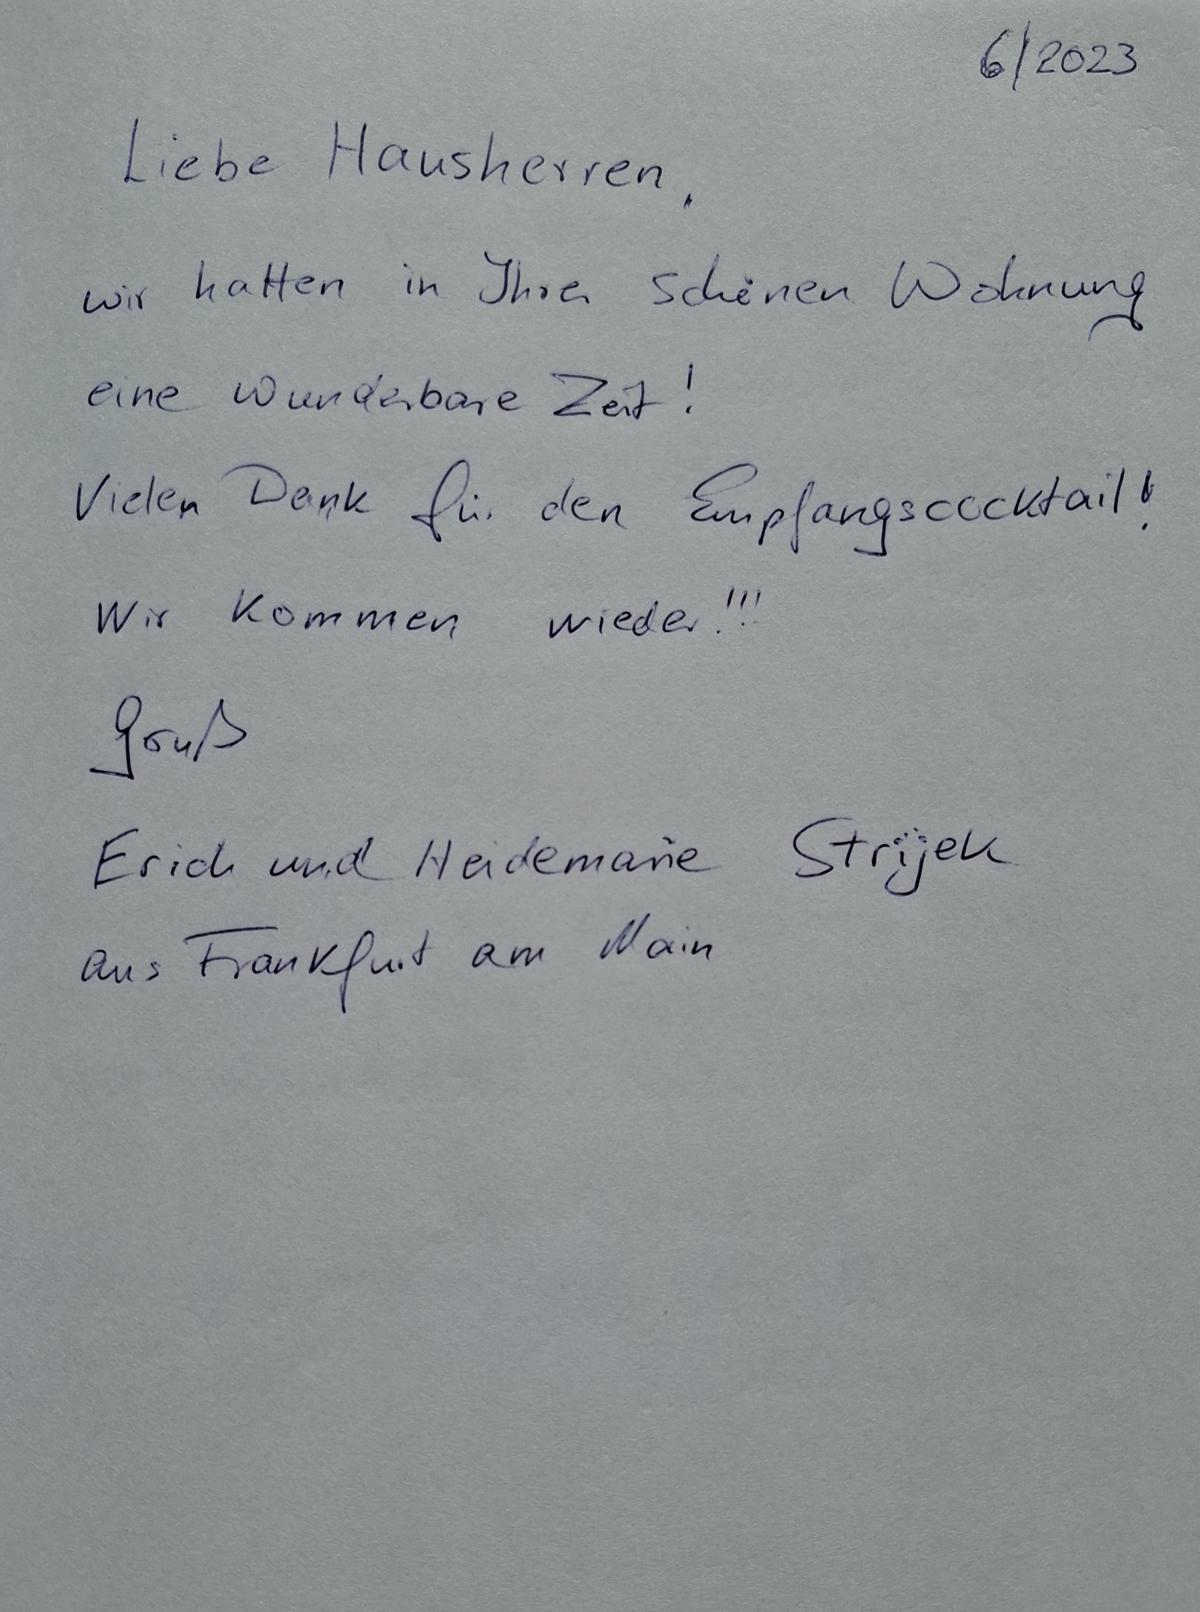 6/2023
Liebe Hausherren,
wir hatten in Ihrer schönen Wohnung
eine wunderbare Zeit!
Vielen Dank für den Empfangscocktail!
Wir kommen wieder!!!
Gruß
Erich und Heidemarie Strijek
aus Frankfurt am Main